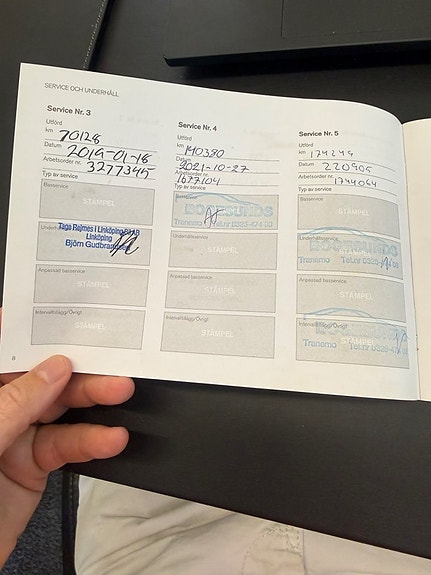 SERVICE OCH UNDERHÅLL
Service Nr. 3
Utförd
km 70128
Datum 2019-01-16
Arbetsorder nr. 3277345
Typ av service
Basservice
STÄMPEL
Taga Rejmes i Linköping
Linköping
Björn
Anpassad basservice
STÄMPEL
Intervalltillägg/Övrigt
STÄMPEL
8
Service Nr. 4
Utförd
km 140380
Datum 2021-10-27
Arbetsorder nr. 1677104
Typ av service
Basservice
BOGESUNDS
Tranemo Tel.nr 0325-474 00
Underhållsservice
STÄMPEL
Anpassad basservice
STÄMPEL
Intervalltillägg/Övrigt
STÄMPEL
Service Nr. 5
Utförd
km 174249
Datum 220905
Arbetsorder nr. 1744064
Typ av service
Basservice
STÄMPEL
Underhållsservice
BOGESUNDS
Tranemo Tel.nr 0325-474 00
Anpassad basservice
STÄMPEL
Intervalltillägg/Övrigt
STÄMPEL
Tranemo Tel.nr 0325-474 00